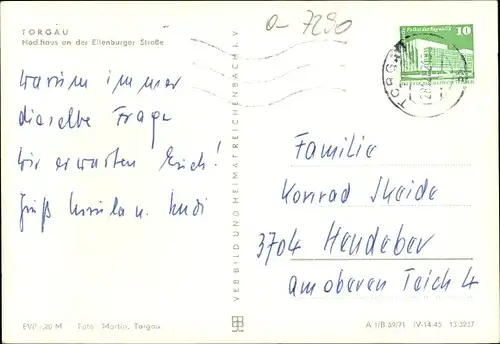 TORGAU
Hochhaus an der Eilenburger Straße
0-7290
10
TORGAU
warum immer
dieselbe Frage
Wir erwarten Euch!
Gruß u.
VEB BILD UND HEIMAT REICHENBACH I. V.
Familie
Konrad
3704 Heudeber
am oberen Teich 4
EVP -,20 M Foto: Martin, Torgau
A 1/B 59/71 IV-14-45 13 3237